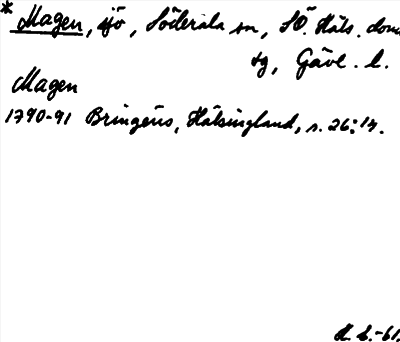 * Magen, sjö, Söderala sn, SÖ. Häls. doms
sg, Gävl. l.
Magen
1790-91 Bringéus, Hälsingland, s. 26:14.